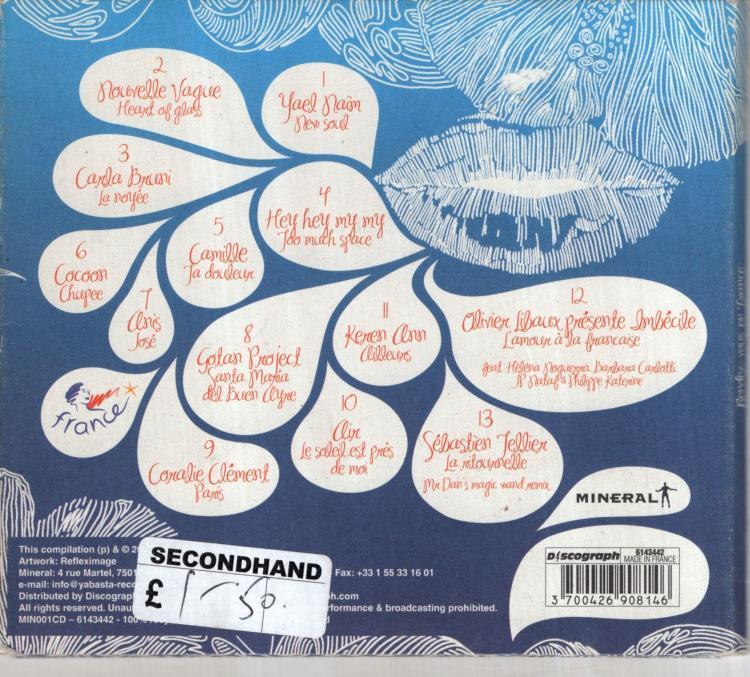 1
Yael Naïm
New soul
2
Nouvelle Vague
Heart of glass
3
Carla Bruni
La noyée
4
Hey hey my my
Too much space
5
Camille
Ta douleur
6
Cocoon
Chupee
7
Anis
José
8
Gotan Project
Santa Maria
del Buen Ayre
9
Coralie Clément
Paris
10
Air
Le soleil est près
de moi
11
Keren Ann
Ailleurs
12
Olivier Libaux présente Imbécile
L'amour à la française
feat Héléna Noguerra Barbara Carlotti
JP Nataf & Philippe Katerine
13
Sébastien Tellier
La ritournelle
Mr Dan's magic wand remix
france
MINERAL
Discograph
6143442
MADE IN FRANCE
3 700426 908146
This compilation (p) & © 2
Artwork: Refleximage
Mineral: 4 rue Martel, 7501 Fax: +33 1 55 33 16 01
e-mail: info@yabasta-rec
Distributed by Discograp ph.com
All rights reserved. Unau erformance & broadcasting prohibited.
MIN001CD – 6143442 - 100%
SECONDHAND
£ 1-50